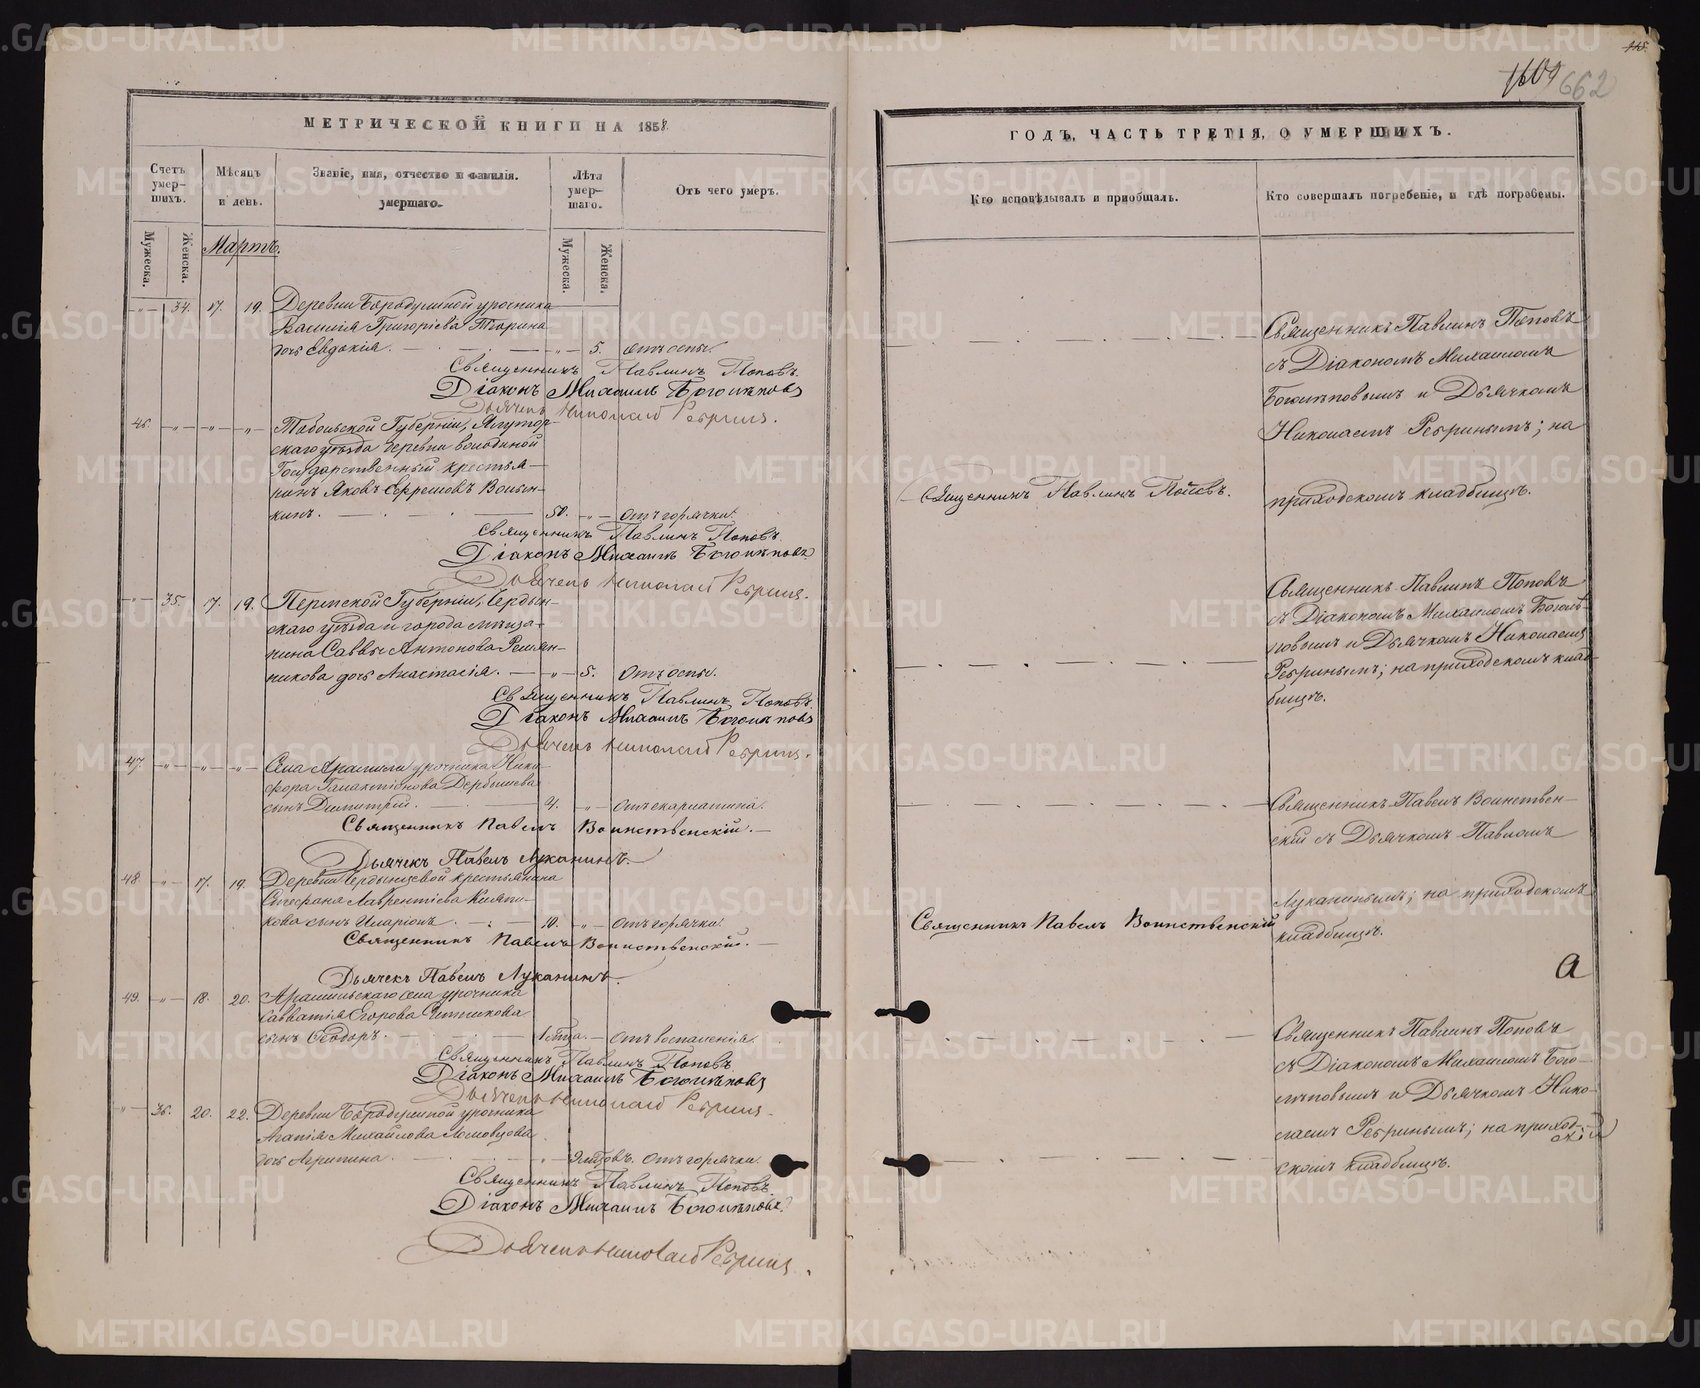 МЕТРИЧЕСКОЙ КНИГИ НА 1858
Счетъ умер-шихъ.
Мѣсяцъ и день.
Званіе, имя, отчество и фамилія умершаго.
Лѣта умер-шаго.
Отъ чего умеръ.
Мужеска.
Женска.
Мартъ.
Мужеска.
Женска.
34. 17. 19. Деревни Бородулиной урочника
Василія Григорьева
дочь Евдокія. 5. отъ оспы.
Священникъ Павлинъ Поповъ.
Діаконъ Михаилъ Боголѣповъ
Дьячекъ Николай Ребринъ.
46. Тобольской Губерніи, Ялутор-
скаго уѣзда деревни
Государственный крестья-
нинъ Яковъ Ефремовъ
кинъ. 50. отъ горячки.
Священникъ Павлинъ Поповъ.
Діаконъ Михаилъ Боголѣповъ
Дьячекъ Николай Ребринъ.
35. 17. 19. Пермской Губерніи, Чердын-
скаго уѣзда и города мѣща-
нина Саввы Антонова
никова дочь Анастасія. 5. отъ оспы.
Священникъ Павлинъ Поповъ.
Діаконъ Михаилъ Боголѣповъ
Дьячекъ Николай Ребринъ.
47. Села Арамили урочника Ники-
фора Галактіонова Дербышева
сынъ Димитрій. 4. отъ скарлатина.
Священникъ Павелъ Воинственскій.
Дьячекъ Павелъ Луканинъ.
48 17. 19. Деревни крестьянина
Стефана Лаврентіева
кова сынъ Иларіонъ. 10. отъ горячки.
Священникъ Павелъ Воинственскій.
Дьячекъ Павелъ Луканинъ.
49. 18. 20. Арамильскаго села урочника
Савватія Егорова
сынъ Ѳеодоръ. отъ воспаленія.
Священникъ Павлинъ Поповъ
Діаконъ Михаилъ Боголѣповъ
Дьячекъ Николай Ребринъ.
36. 20. 22. Деревни Бородулиной урочника
Агапія Михайлова
дочь Агрипина. отъ горячки.
Священникъ Павлинъ Поповъ
Діаконъ Михаилъ Боголѣповъ.
Дьячекъ Николай Ребринъ.
115.
1609
662
ГОДЪ, ЧАСТЬ ТРЕТІЯ, О УМЕРШИХЪ.
Кто исповѣдывалъ и пріобщалъ.
Кто совершалъ погребеніе, и гдѣ погребены.
Священникъ Павлинъ Поповъ
съ Діакономъ Михаиломъ
Боголѣповымъ и Дьячкомъ
Николаемъ Ребринымъ; на
Священникъ Павлинъ Поповъ.
приходскомъ кладбищѣ.
Священникъ Павлинъ Поповъ
съ Діакономъ Михаиломъ Боголѣ-
повымъ и Дьячкомъ Николаемъ
Ребринымъ; на приходскомъ клад-
бищѣ.
Священникъ Павелъ Воинствен-
скій съ Дьячкомъ Павломъ
Луканинымъ; на приходскомъ
Священникъ Павелъ Воинственскій
кладбищѣ.
а
Священникъ Павлинъ Поповъ
съ Діакономъ Михаиломъ Бого-
лѣповымъ и Дьячкомъ Нико-
лаемъ Ребринымъ; на приход-
скомъ кладбищѣ.
METRIKI.GASO-URAL.RU